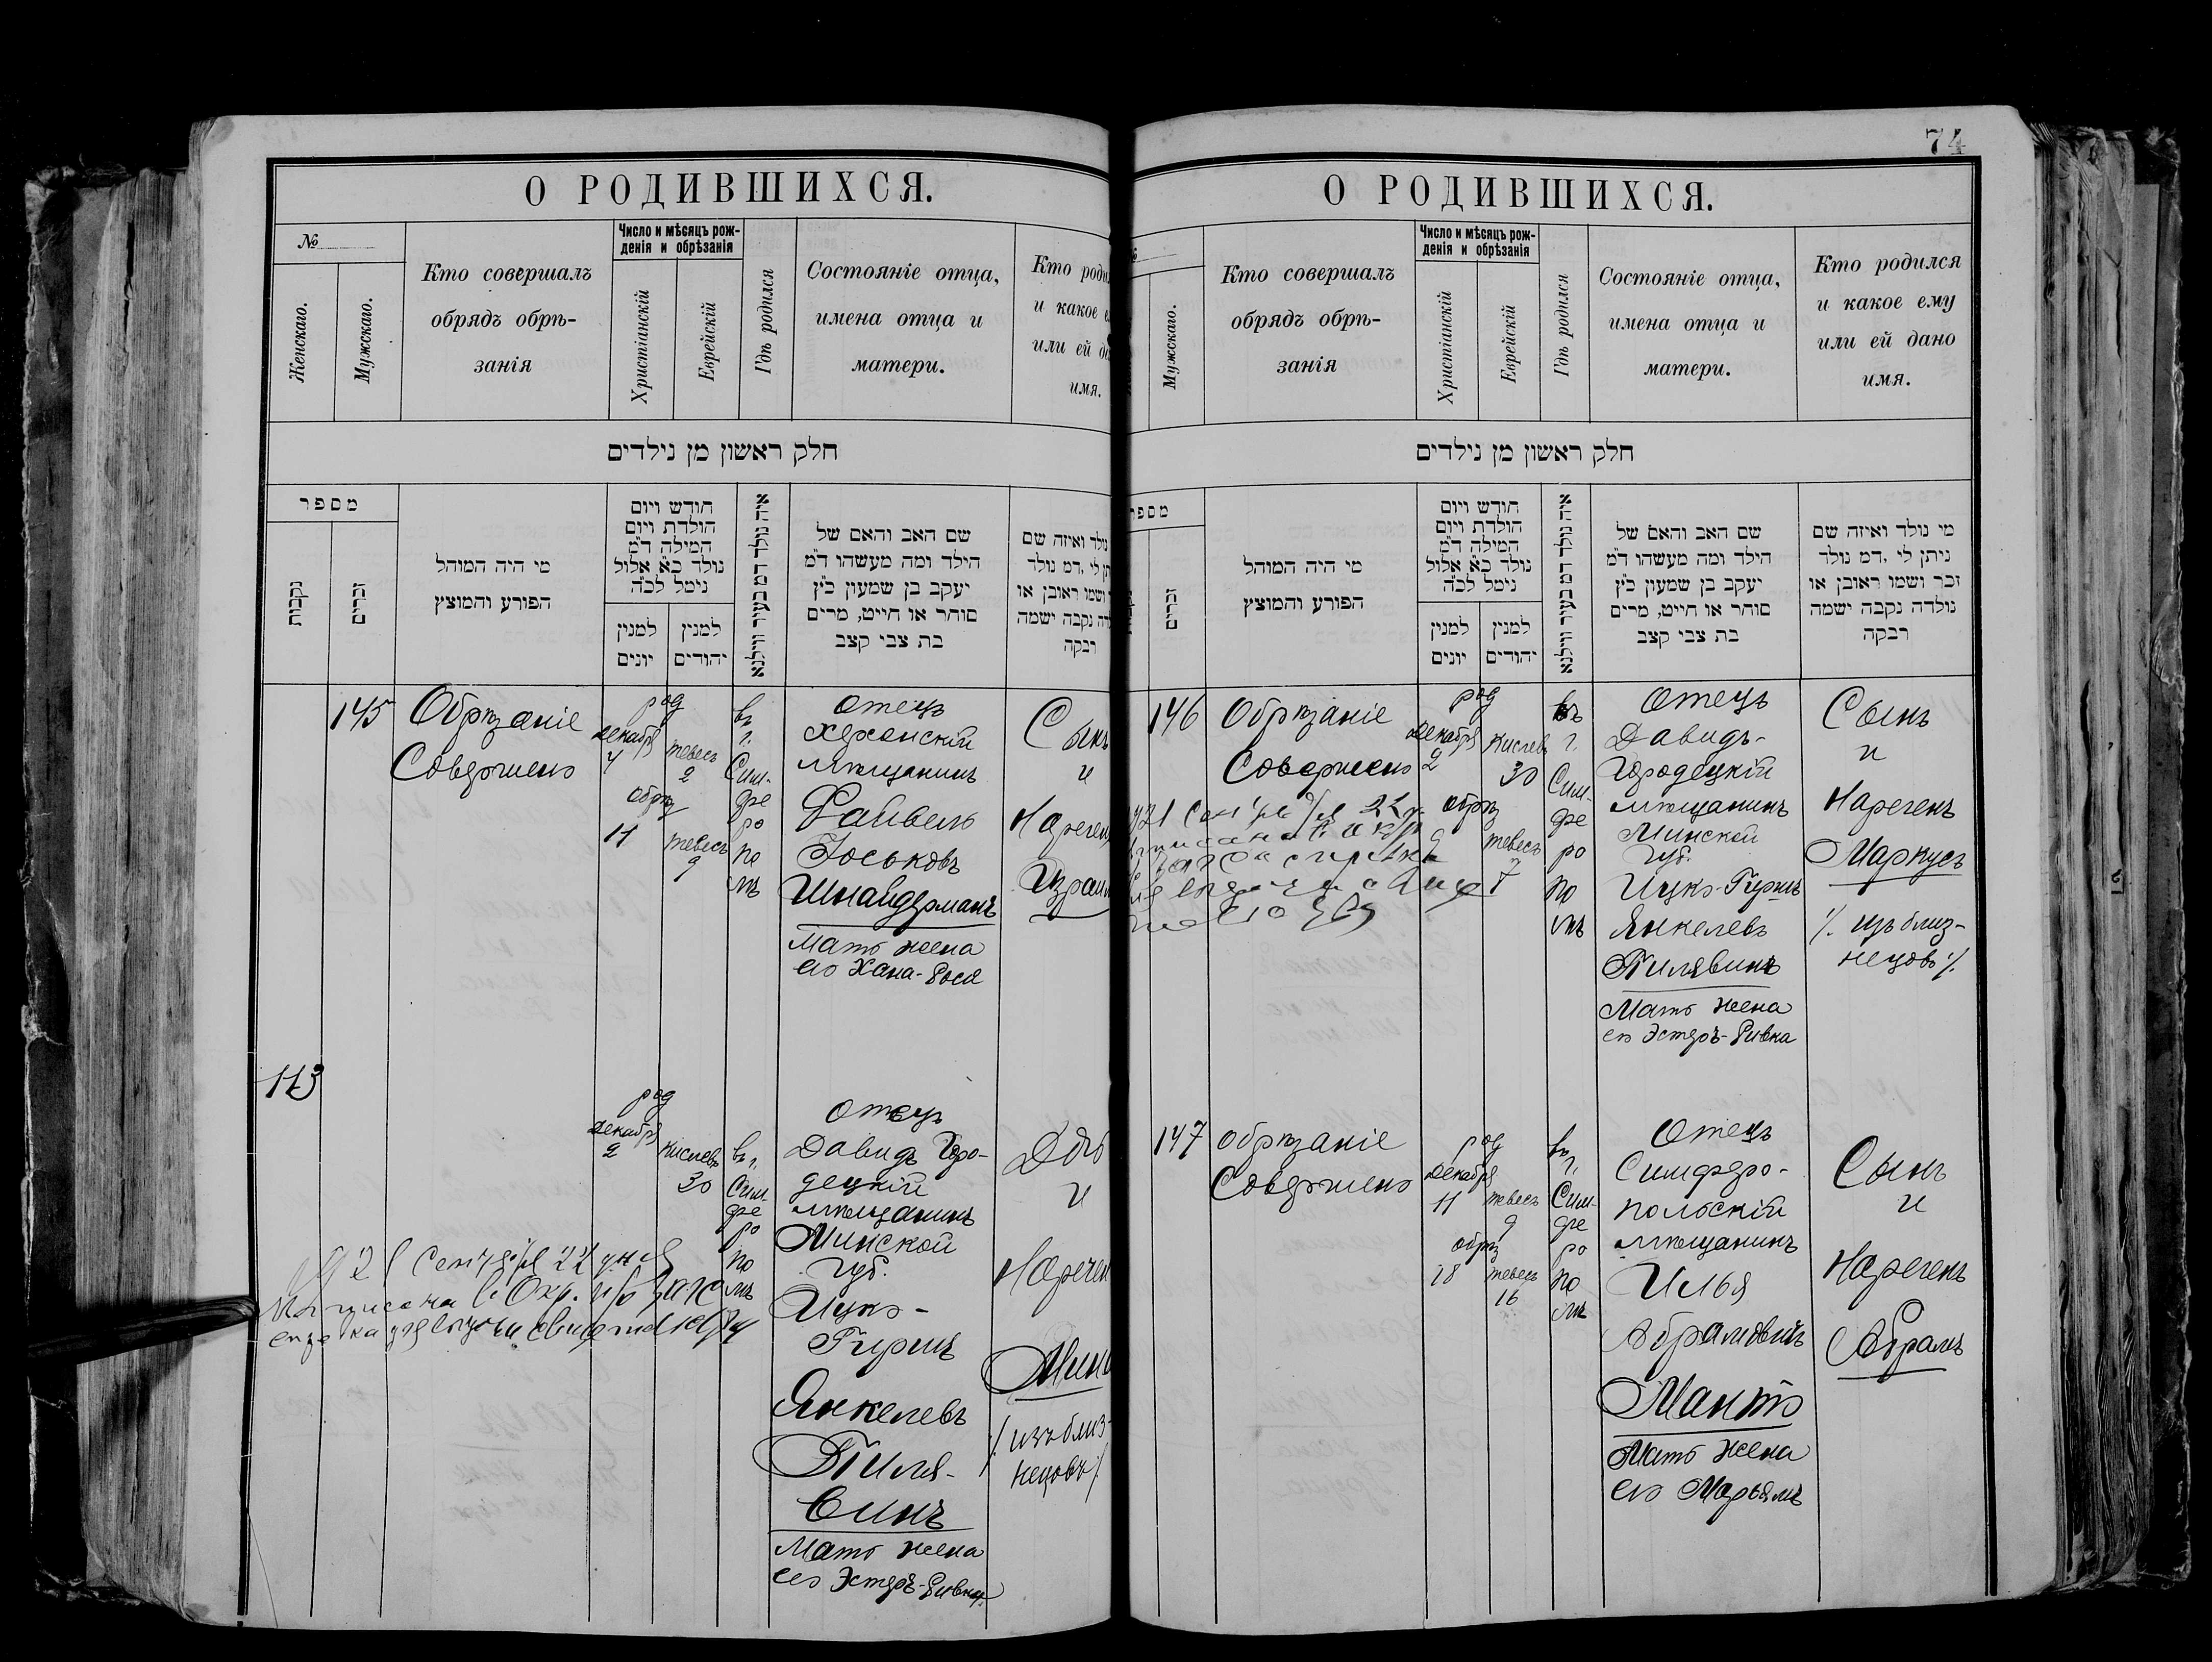 74
О РОДИВШИХСЯ.
№
Женскаго.
Мужскаго.
Кто совершалъ
обрядъ обрѣ-
занія
Число и мѣсяцъ рож-
денія и обрѣзанія
Христіанскій
Еврейскій
Гдѣ родился
Состояніе отца,
имена отца и
матери.
Кто роди
и какое е
или ей да
имя.
חלק ראשון מן נילדים
מספר
נקבות
זכרים
מי היה המוהל
הפורע והמוצץ
חודש ויום
הולדת ויום
המילה ד״מ
נולד כ״א אלול
נימל לכ״ה
למנין
יונים
למנין
יהודים
איה נולד דמ בעיר ווילנא
שם האב והאם של
הילד ומה מעשהו ד״מ
יעקב בן שמעון כ״ץ
סוחר או חייט, מרים
בת צבי קצב
נולד ואיזה שם
תן לי ,דמ נולד
ושמו ראובן או
דה נקבה ישמה
רבקה
145
Обрѣзаніе
Совершено
род
декабря
4
тевесъ
2
обрѣз
11
тевесъ
9
въ
г.
Сим-
фе
ро
по
лѣ
отецъ
Херсонскій
мѣщанинъ
Файвель
Іоськовъ
Шнайдерманъ
Мать жена
его Хана-Рося
Сынъ
и
Наречен
Израил
113
род
декабря
2
кислевъ
30
въ г.
Сим-
фе
ро
по
лѣ
отецъ
Давидъ Горо-
децкій
мѣщанинъ
Минской
губ.
Ицко-
Гиршъ
Янкелевъ
Пиля-
винъ
Мать жена
его Эстеръ-Ривка
Дочь
и
Наречен
Мин
/. изъ близ-
нецовъ /.
О РОДИВШИХСЯ.
Мужскаго.
Кто совершалъ
обрядъ обрѣ-
занія
Число и мѣсяцъ рож-
денія и обрѣзанія
Христіанскій
Еврейскій
Гдѣ родился
Состояніе отца,
имена отца и
матери.
Кто родился
и какое ему
или ей дано
имя.
חלק ראשון מן נילדים
מספר
זכרים
מי היה המוהל
הפורע והמוצץ
חודש ויום
הולדת ויום
המילה ד״מ
נולד כ״א אלול
נימל לכ״ה
למנין
יונים
למנין
יהודים
איה נולד דמ בעיר ווילנא
שם האב והאם של
הילד ומה מעשהו ד״מ
יעקב בן שמעון כ״ץ
סוחר או חייט, מרים
בת צבי קצב
מי נולד ואיזה שם
ניתן לי ,דמ נולד
זכר ושמו ראובן או
נולדה נקבה ישמה
רבקה
146
Обрѣзаніе
Совершено
род
декабря
2
кислевъ
30
обрѣз
9
тевесъ
7
въ
г.
Сим-
фе
ро
по
лѣ
отецъ
Давидъ-
Городецкій
мѣщанинъ
Минской
губ.
Ицко-Гиршъ
Янкелевъ
Пилявинъ
Мать жена
его Эстеръ-Ривка
Сынъ
и
Нареченъ
Маркусъ
/. изъ близ-
нецовъ /.
147
обрѣзаніе
Совершено
род
декабря
11
тевесъ
9
обрѣз
18
тевесъ
16
въ
г.
Сим-
фе
ро
по
лѣ
Отецъ
Симферо-
польскій
мѣщанинъ
Илья
Абрамовичъ
Манто
Мать жена
его Марьямъ
Сынъ
и
Нареченъ
Абрамъ